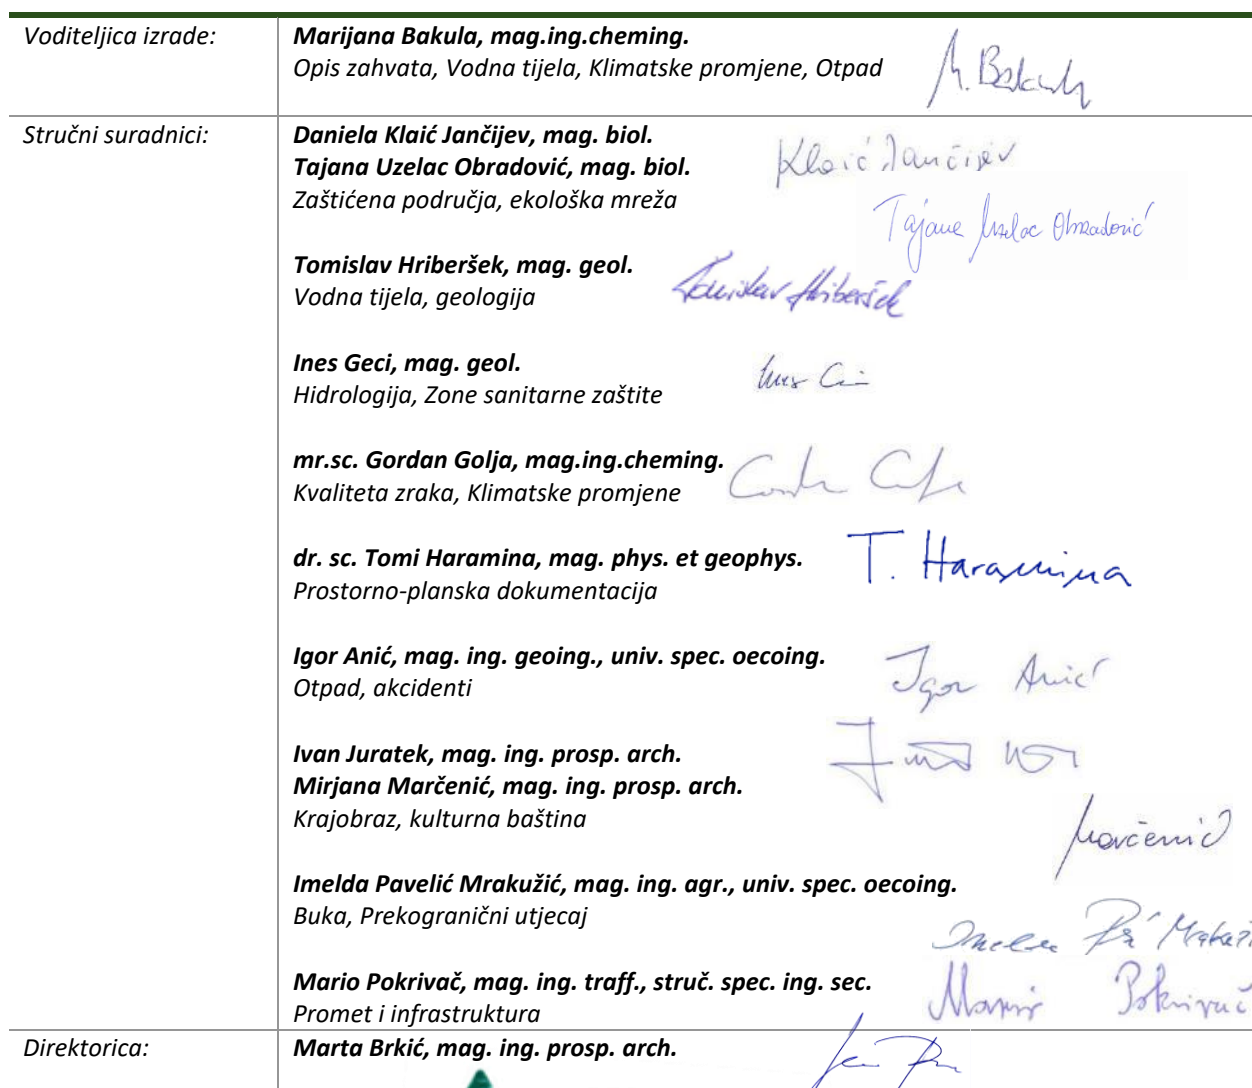 Voditeljica izrade:
Marijana Bakula, mag.ing.cheming.
Opis zahvata, Vodna tijela, Klimatske promjene, Otpad
M. Bakula
Stručni suradnici:
Daniela Klaić Jančijev, mag. biol.
Klaić Jančijev
Tajana Uzelac Obradović, mag. biol.
Zaštićena područja, ekološka mreža
Tajana Uzelac Obradović
Tomislav Hriberšek, mag. geol.
Vodna tijela, geologija
Tomislav Hriberšek
Ines Geci, mag. geol.
Hidrologija, Zone sanitarne zaštite
mr.sc. Gordan Golja, mag.ing.cheming.
Kvaliteta zraka, Klimatske promjene
dr. sc. Tomi Haramina, mag. phys. et geophys.
Prostorno-planska dokumentacija
T. Haramina
Igor Anić, mag. ing. geoing., univ. spec. oecoing.
Otpad, akcidenti
Igor Anić
Ivan Juratek, mag. ing. prosp. arch.
Mirjana Marčenić, mag. ing. prosp. arch.
Krajobraz, kulturna baština
Marčenić
Imelda Pavelić Mrakužić, mag. ing. agr., univ. spec. oecoing.
Buka, Prekogranični utjecaj
Imelda
Mario Pokrivač, mag. ing. traff., struč. spec. ing. sec.
Promet i infrastruktura
Mario Pokrivač
Direktorica:
Marta Brkić, mag. ing. prosp. arch.